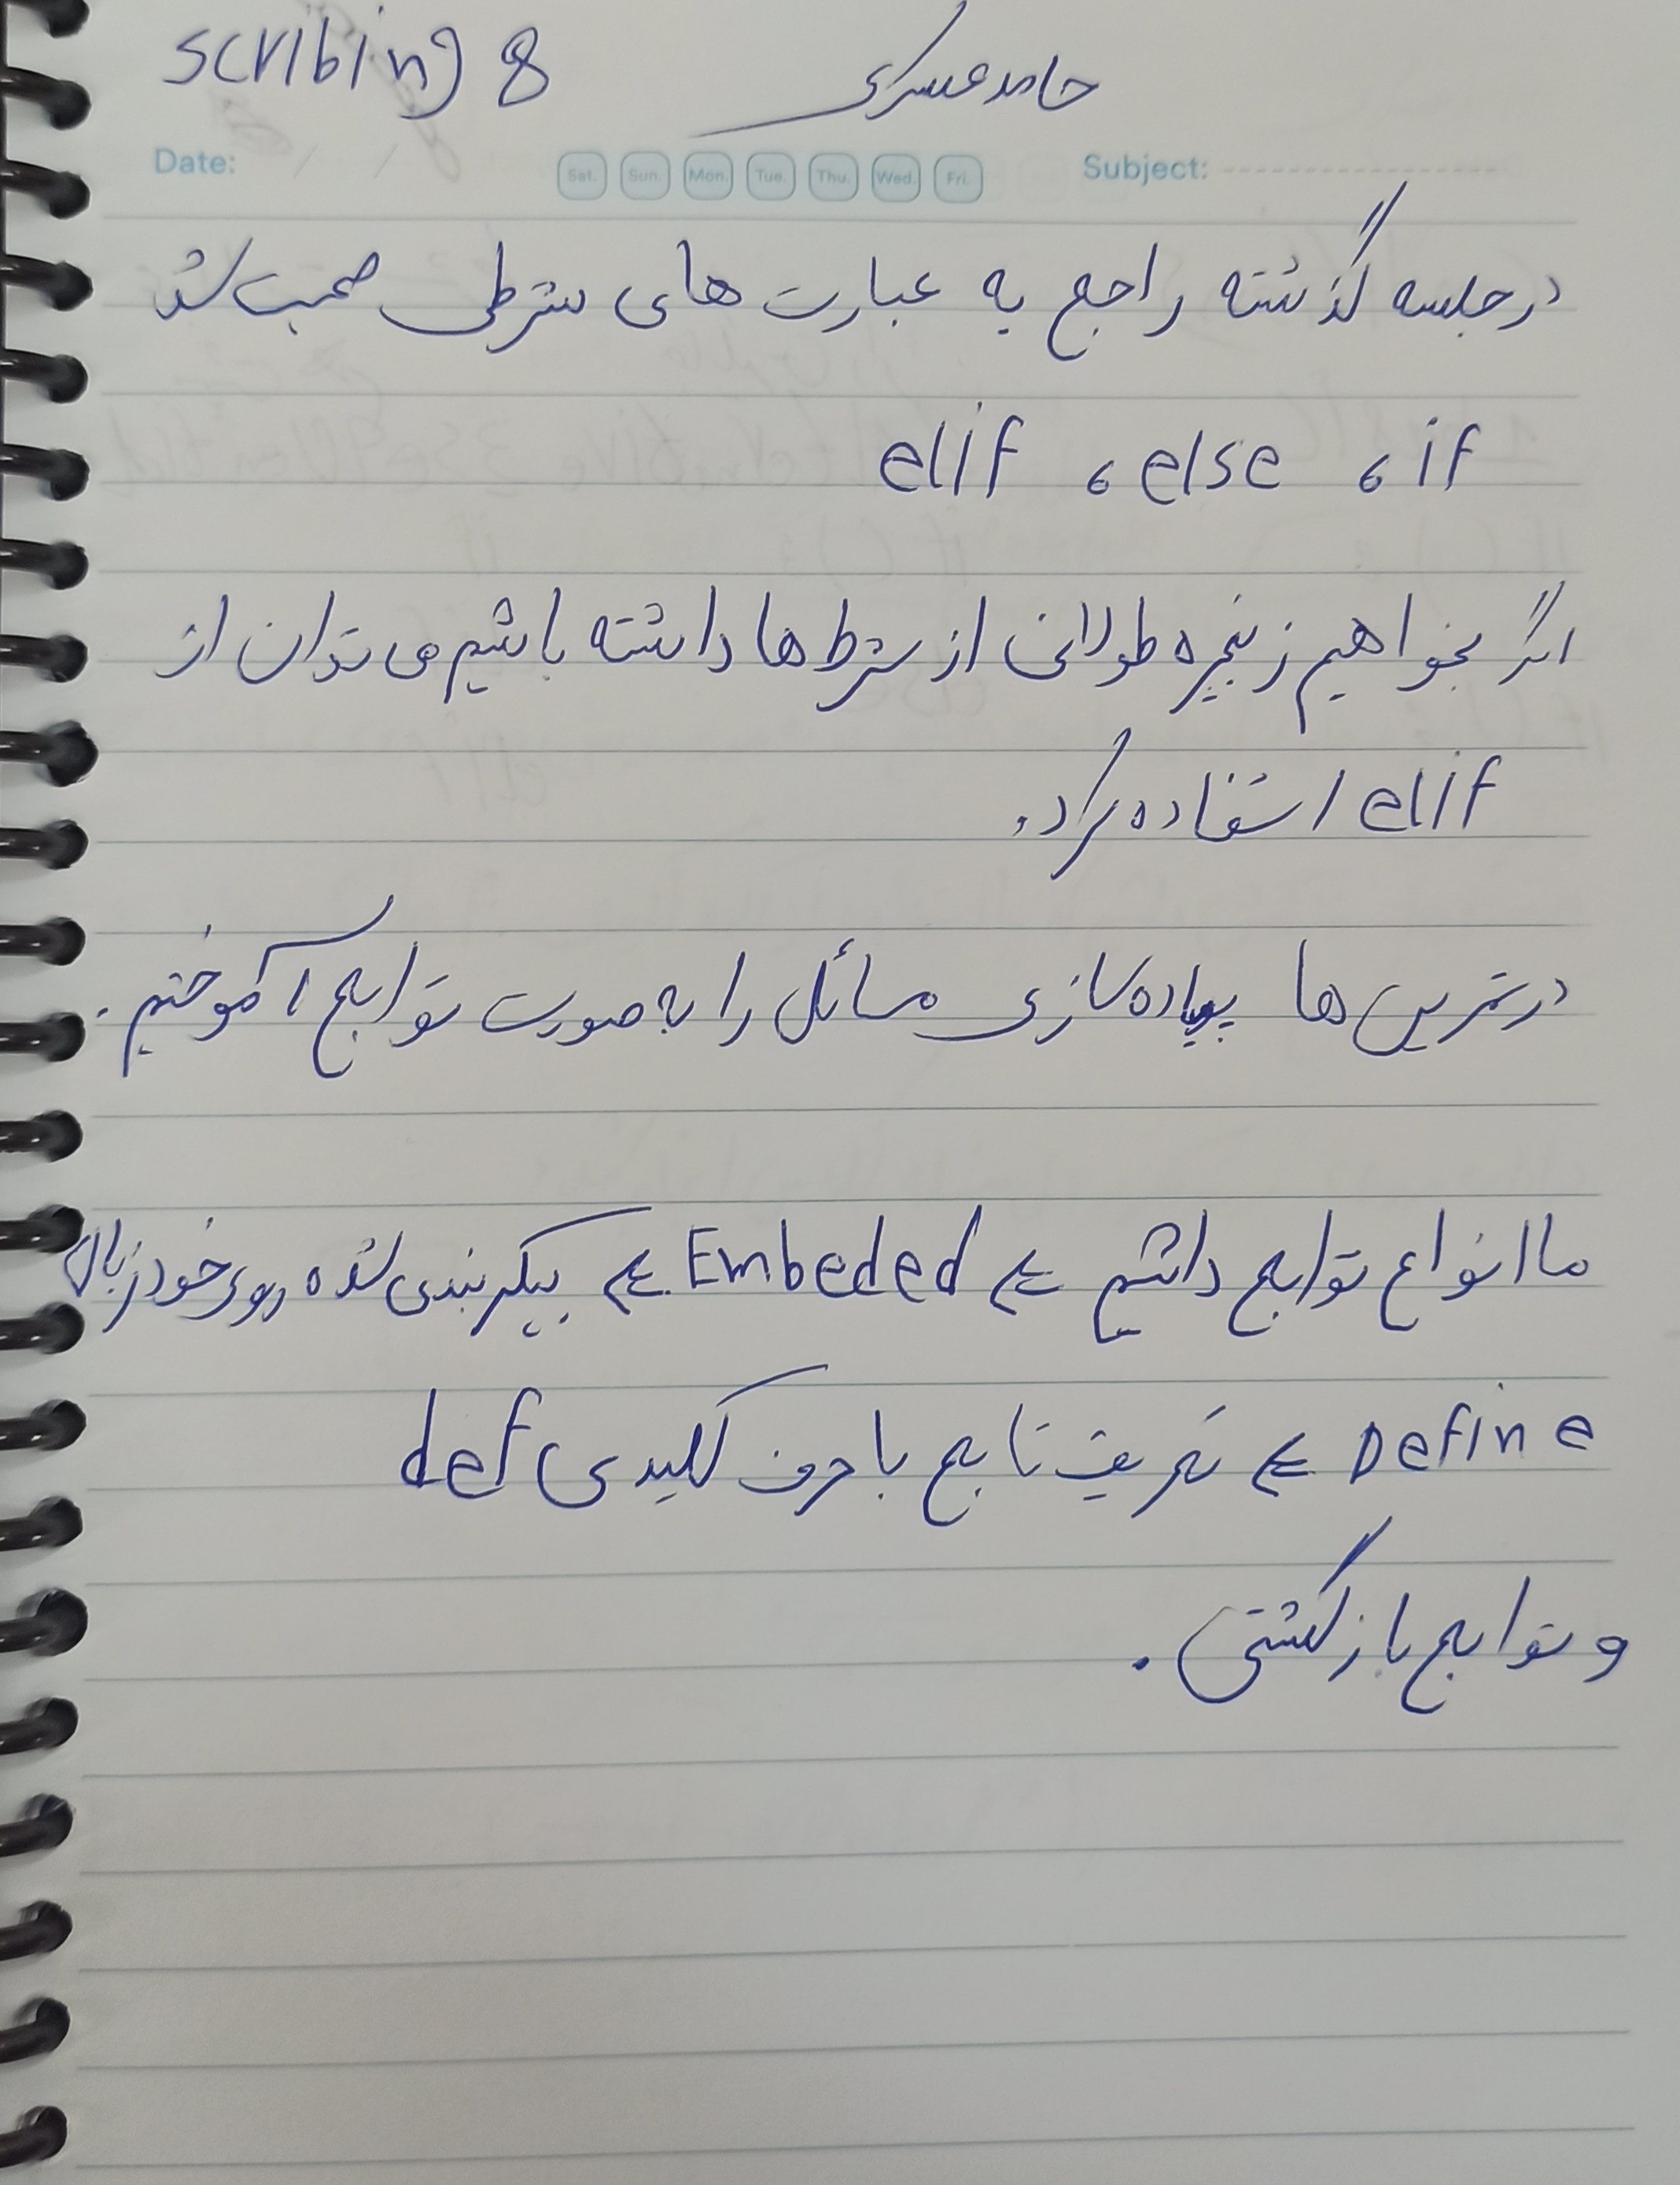 scribing 8 حامد عسکری
Date: / / Sat. Sun. Mon. Tue. Thu. Wed. Fri. Subject:
در جلسه گذشته راجع به عبارت های شرطی صحبت شد
if ، else ، elif
اگر بخواهیم زنجیره طولانی از شرط ها داشته باشیم می توان از
elif استفاده کرد.
در تمرین ها پیاده سازی مسائل را به صورت توابع آموختیم.
ما انواع توابع داشتیم ← Embeded ← پیکربندی شده روی خود زبان
Define ← تعریف تابع با حرف کلیدی def
و توابع بازگشتی.